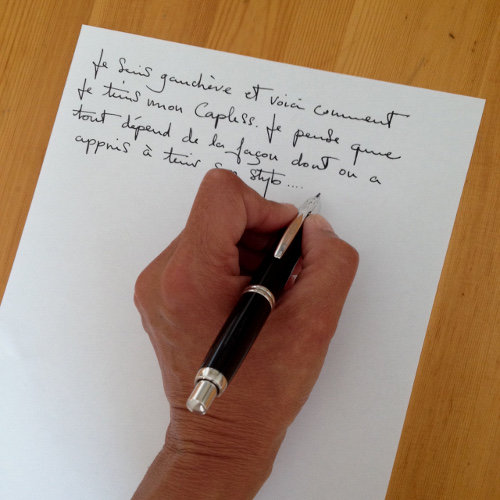 Je suis gauchère et voici comment
je tiens mon Capless. Je pense que
tout dépend de la façon dont on a
appris à tenir son stylo....